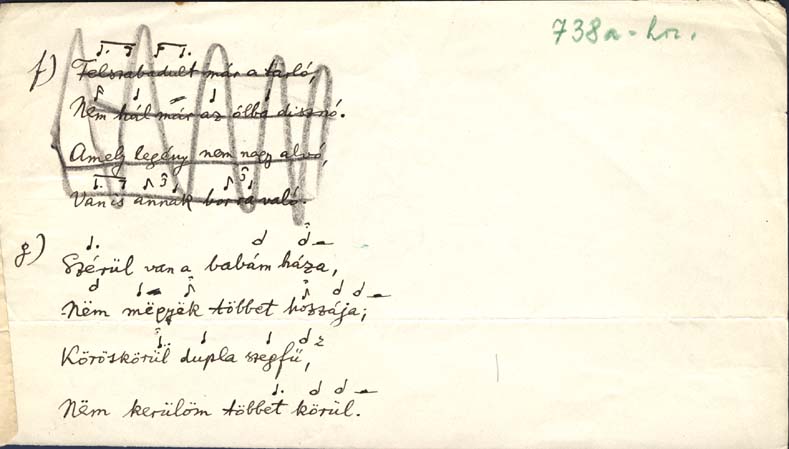 738a-hoz.
f) Felszabadult már a tarló,
Nem hál már az ólba disznó.
Amely legény nem nagy alvó,
Van is annak borra való.
g) Szérül van a babám háza,
Nëm mëgyëk többet hozzája;
Köröskörül dupla szegfű,
Nëm kerülöm többet körül.